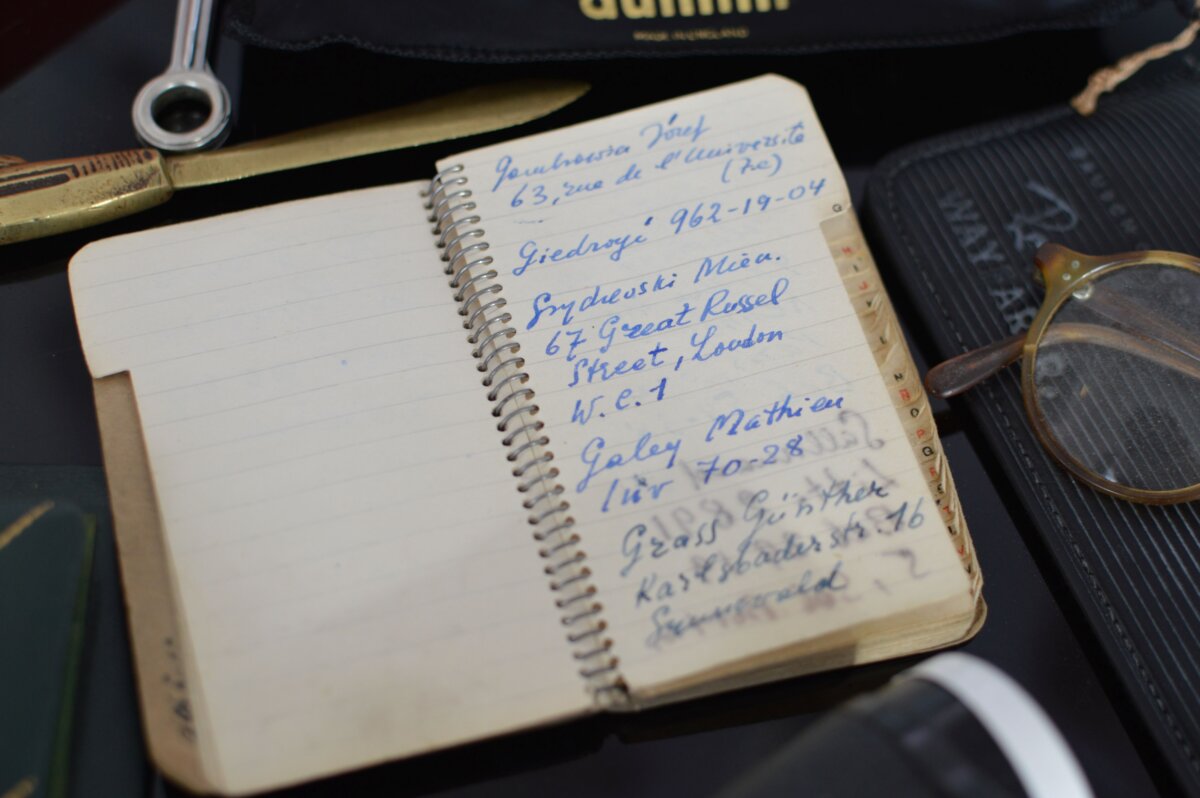 dunhill
MADE IN ENGLAND
Gombrowicz Józef
63, rue de l'Université
(7e)
Giedroyć 962-19-04
Grydzewski Miecz.
67 Great Russel
Street, London
W.C.1
Galey Mathieu
Inv 70-28
Grass Günther
Karlsbaderstr. 16
Grunewald
G
H
I
J
L
N
O
P
Q
WAY AR